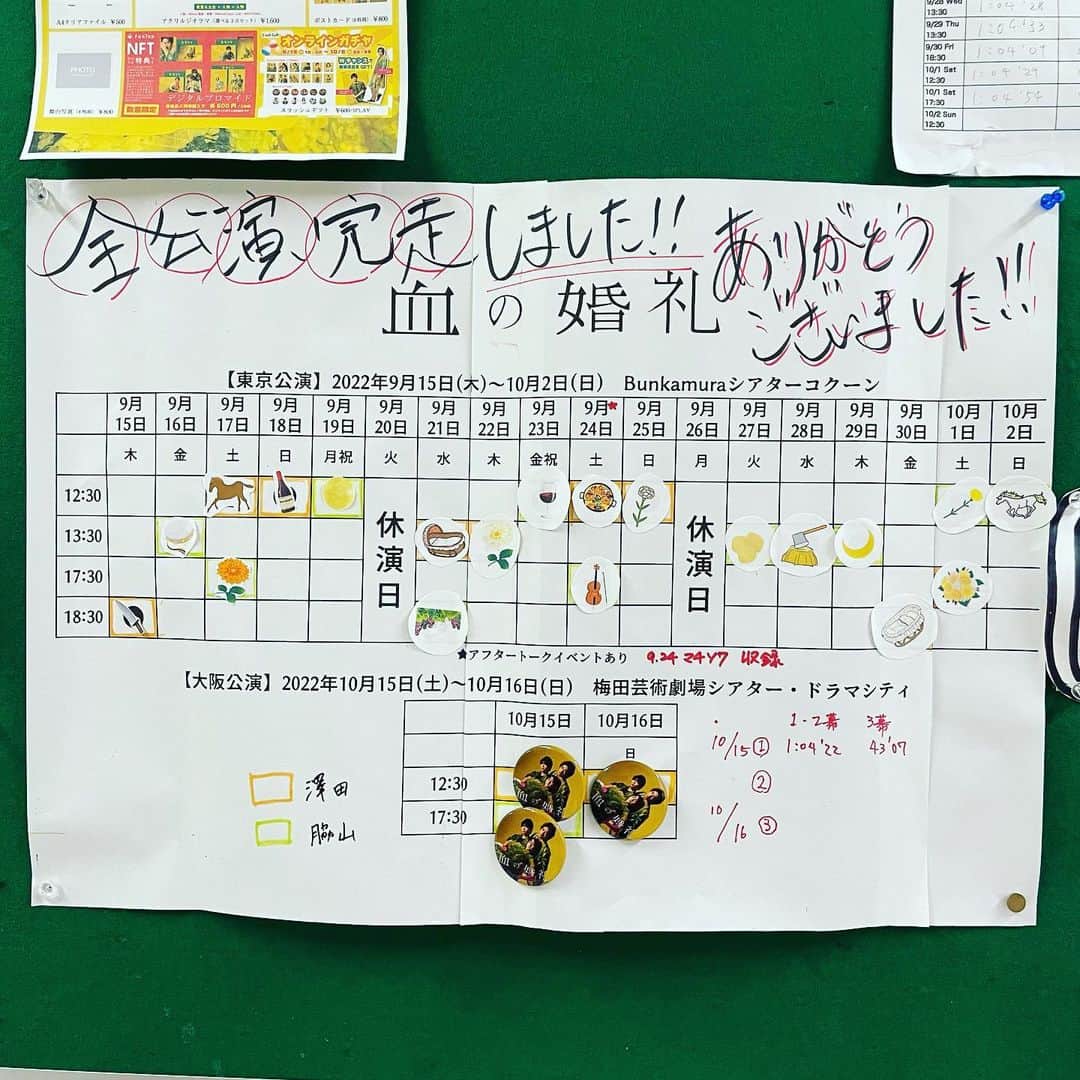 A4クリアファイル ¥500
アクリルジオラマ(選べる3点セット) ¥1,600
ポストカード(6枚組) ¥800
PHOTO
舞台写真(4枚組) ¥800
NFT
特典
数量限定
デジタルブロマイド
オンラインガチャ
スラッシュギフト ¥600/1PLAY
9/28 Wed
13:30
1:04'28
9/29 Thu
13:30
1:04'33
9/30 Fri
18:30
1:04'09
10/1 Sat
12:30
1:04'29
10/1 Sat
17:30
1:04'54
10/2 Sun
12:30
全公演完走しました!! ありがとう
ございました!!
血の婚礼
【東京公演】2022年9月15日(木)〜10月2日(日) Bunkamuraシアターコクーン
9月 9月 9月 9月 9月 9月 9月 9月 9月 9月★ 9月 9月 9月 9月 9月 9月 10月 10月
15日 16日 17日 18日 19日 20日 21日 22日 23日 24日 25日 26日 27日 28日 29日 30日 1日 2日
木 金 土 日 月祝 火 水 木 金祝 土 日 月 火 水 木 金 土 日
12:30
13:30
17:30
18:30
休演日
休演日
★アフタートークイベントあり 9.24 マチソワ 収録
【大阪公演】2022年10月15日(土)〜10月16日(日) 梅田芸術劇場シアター・ドラマシティ
10月15日 10月16日
日
12:30
17:30
澤田
脇山
1-2幕 3幕
10/15 ① 1:04'22 43'07
②
10/16 ③